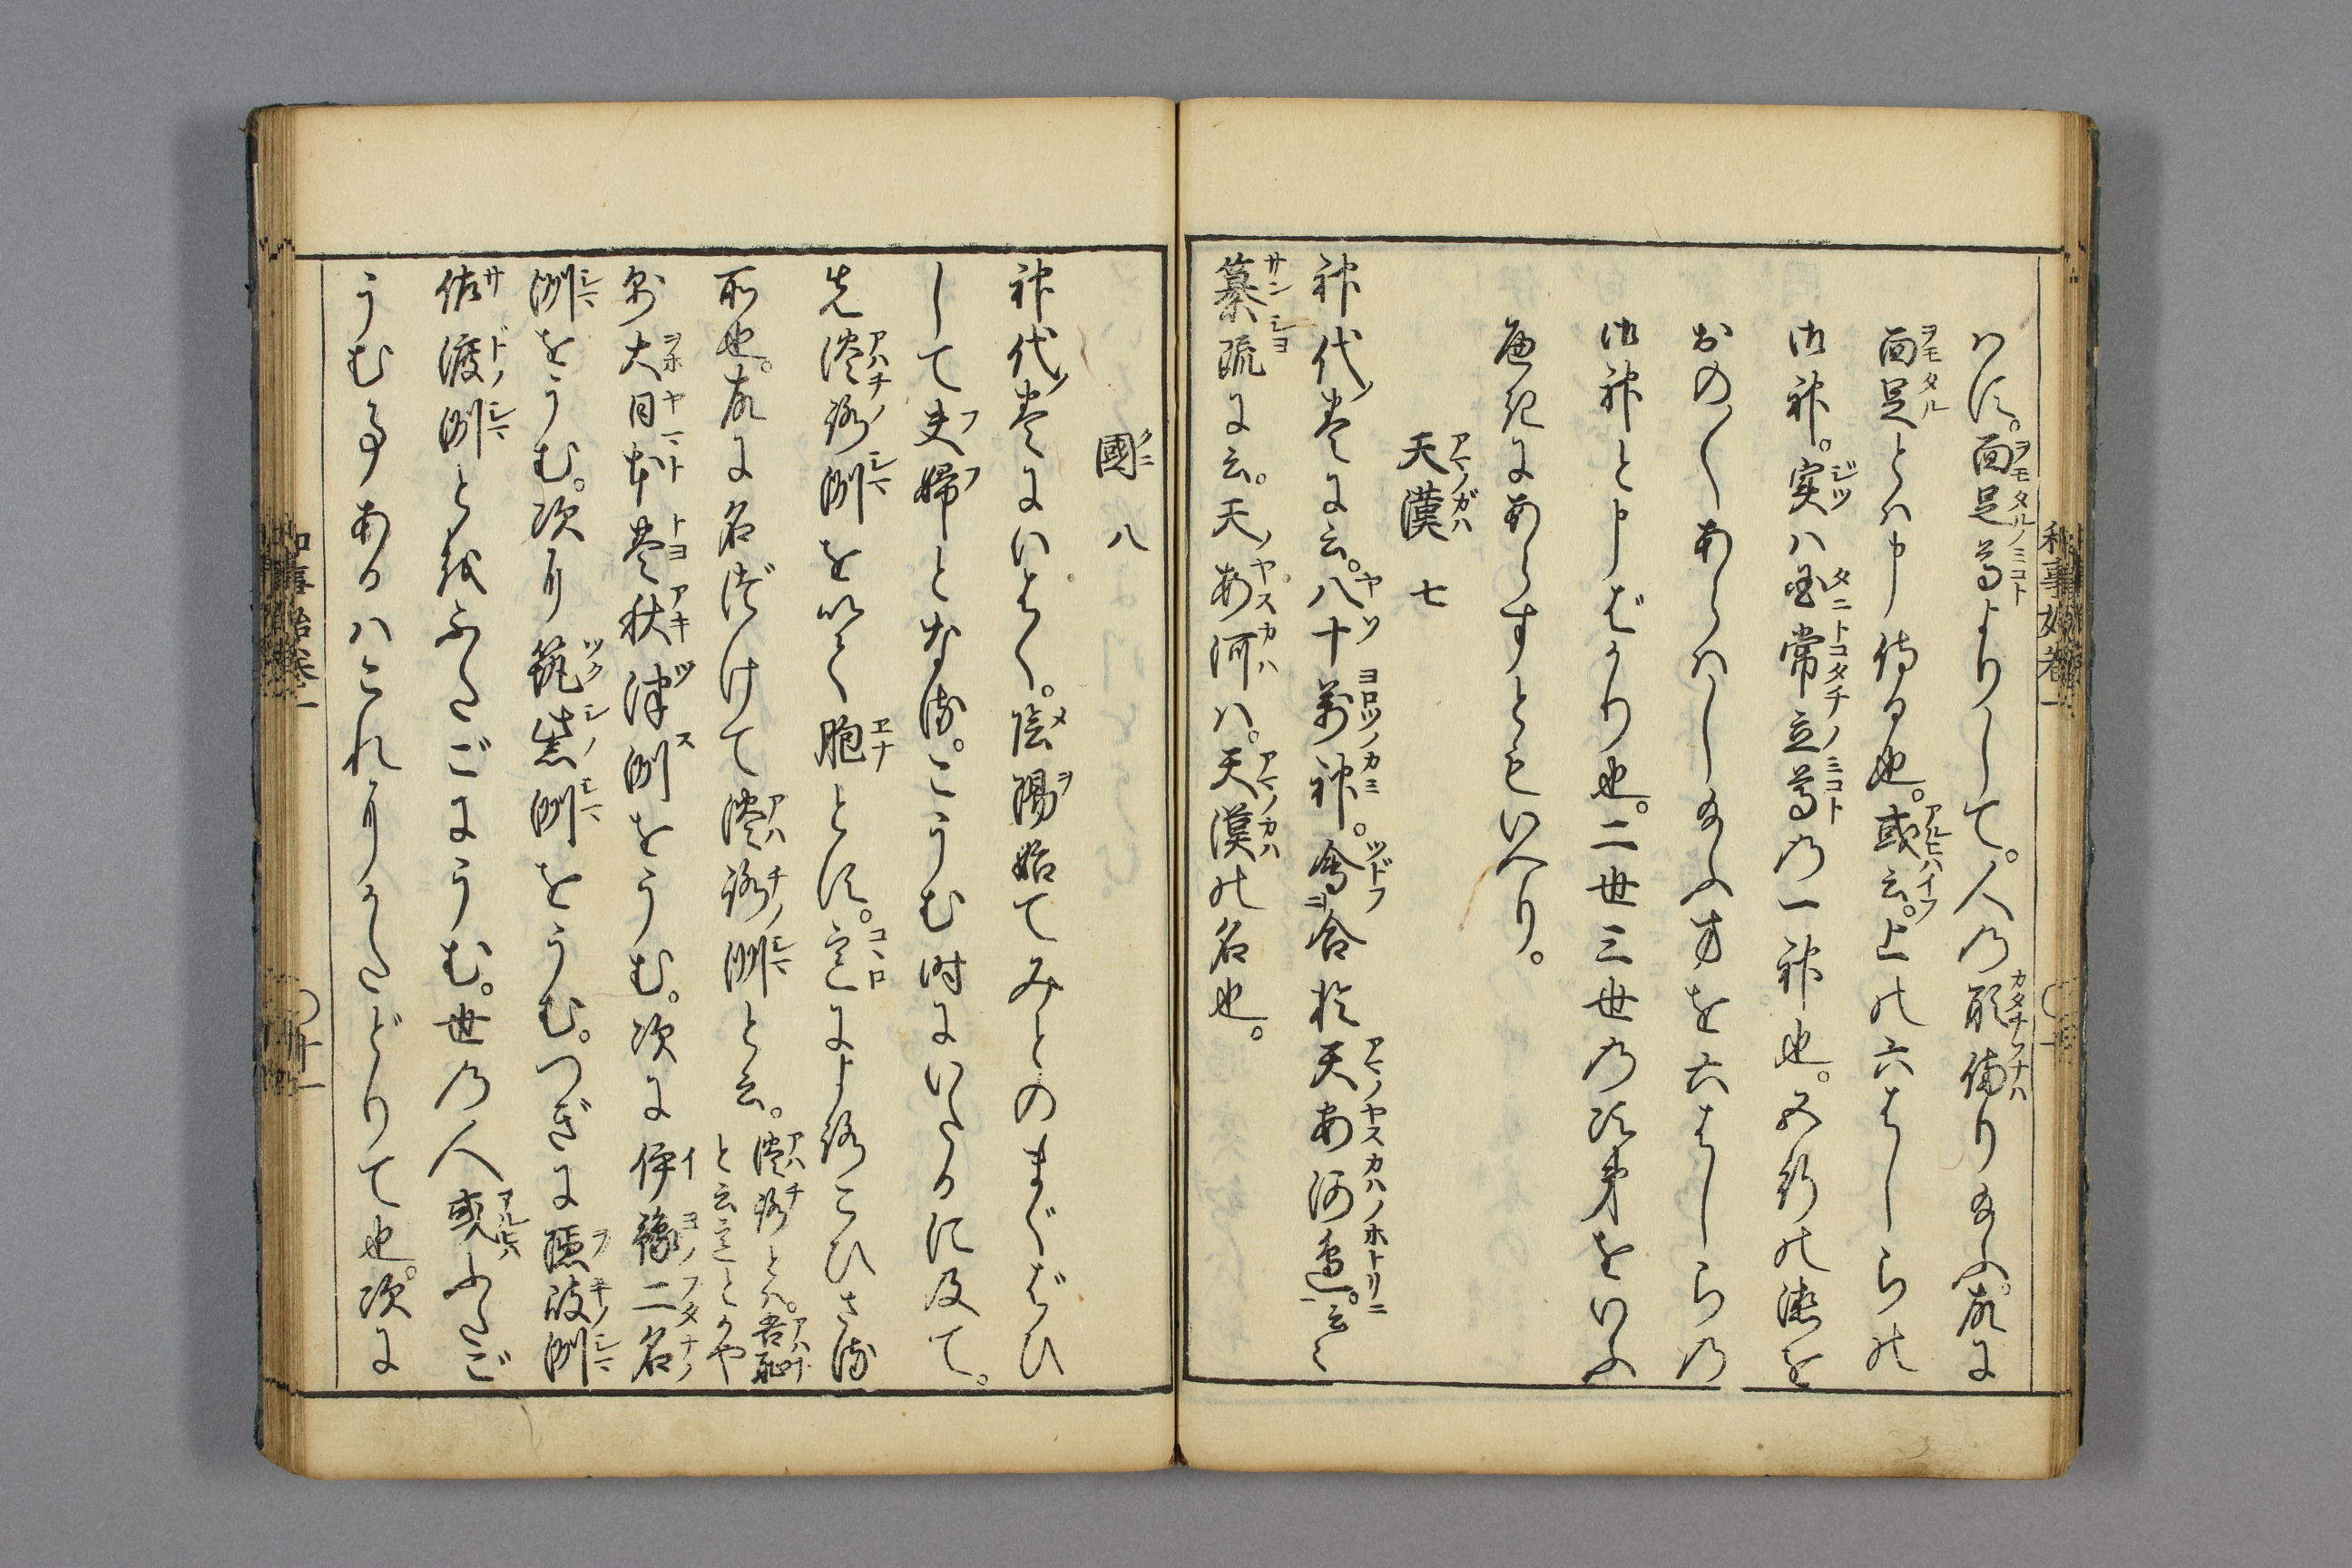 ハす。面足尊よりして。人の形備り給ふ。故に
面足とハ申侍る也。或云。上の六はしらの
御神。実ハ国常立尊の一神也。五行の徳を
おの〳〵あらハし給ふ事を六はしらの
御神と申ばかり也。二世三世の次第をいふ
にあらずともいへり。
天漢 七
神代巻に云。八十万神。會合於天安河邊。云々
纂疏に云。天安河ハ。天漢の名也。
國 八
神代巻にいはく。陰陽始てみとのまぐばひ
して夫婦となる。こうむ時にいたるに及て。
先淡路洲を以て胞とす。意によろこひざる
所也。故に名づけて淡路洲と云。淡路とハ。吾恥
と云意とかや
次に大日本豊秋津洲をうむ。次に伊豫二名
洲をうむ。次に筑紫洲をうむ。つぎに隠岐洲
佐渡洲とをふたごにうむ。世の人或ふたご
うむ事あるハこれにかたどりて也。次に
和事始巻一